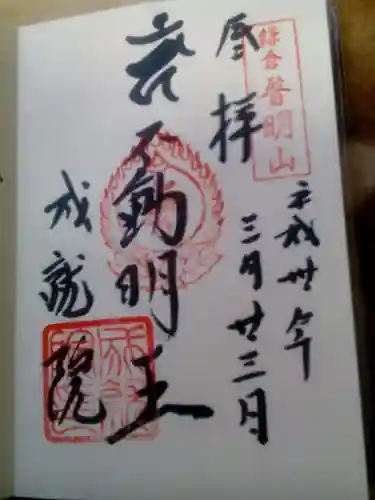 鎌倉普明山
平成卅年
三月廿三日
奉拝
不動明王
成就院